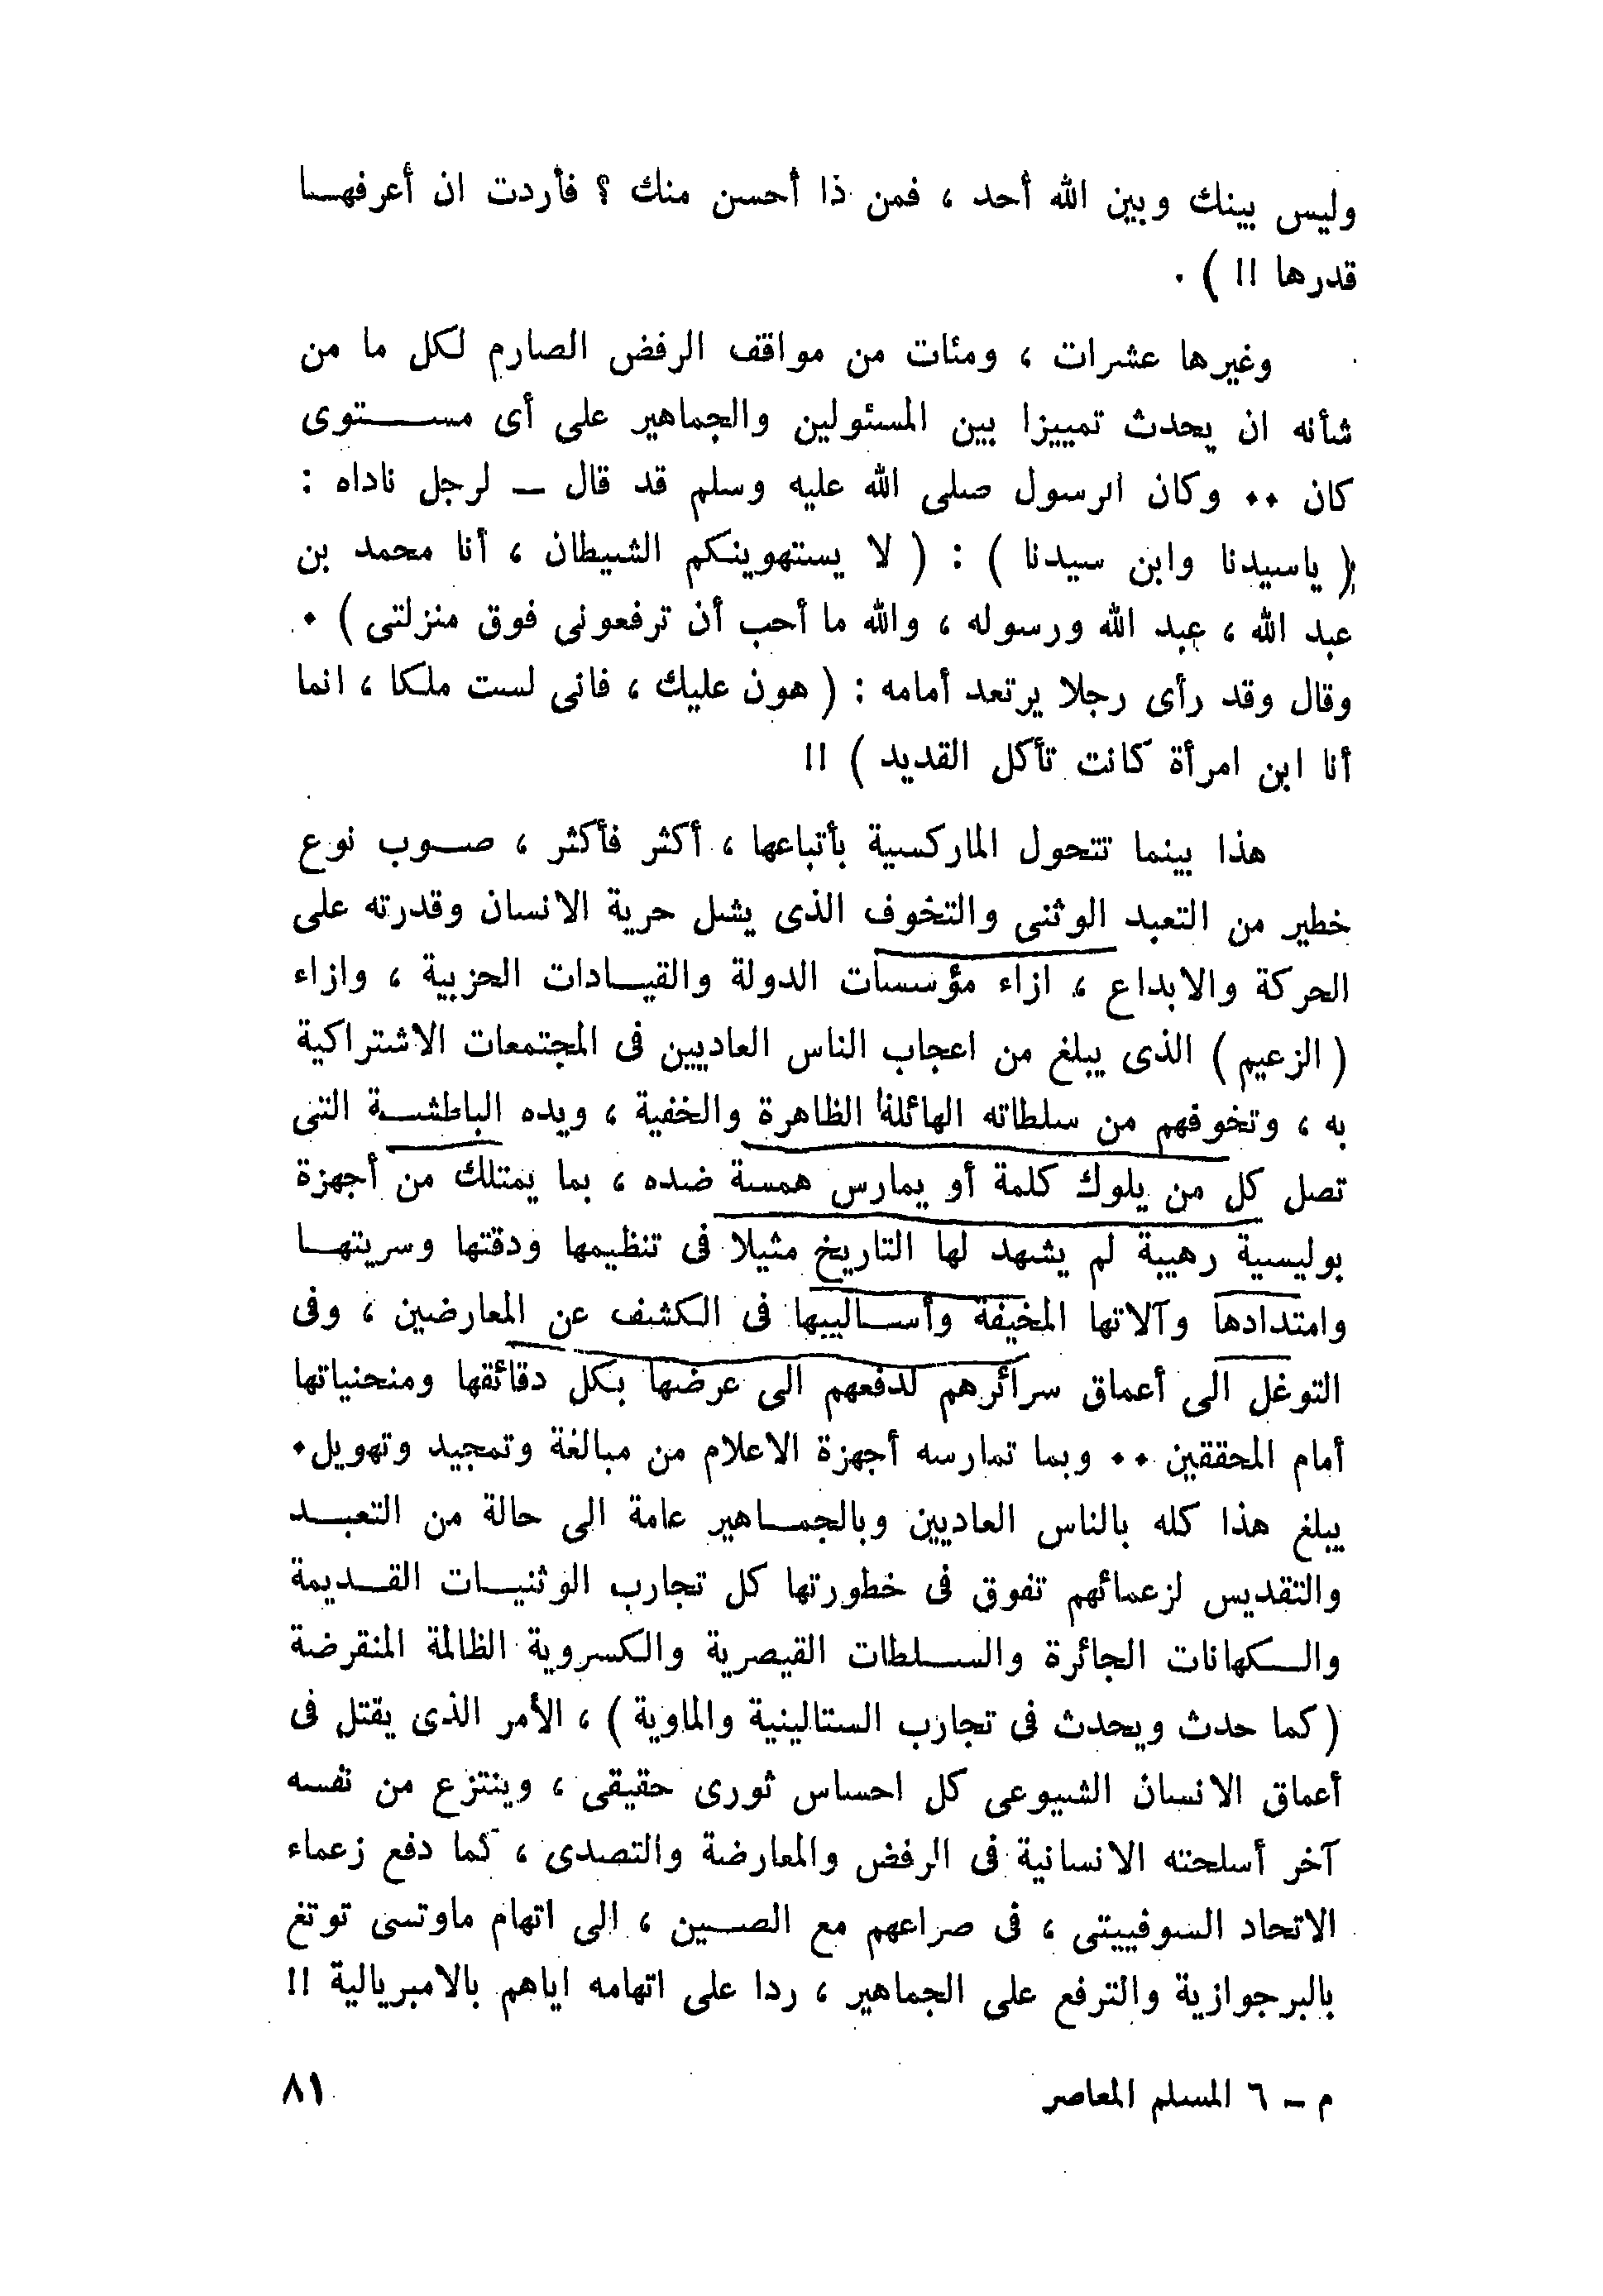 وليس بينك وبين الله أحد ، فمن ذا أحسن منك ؟ فأردت ان أعرفهـا
قدرها !! ) .
وغيرها عشرات ، ومئات من مواقف الرفض الصارم لكل ما من
شأنه ان يحدث تمييزا بين المسئولين والجماهير على أى مستوى
كان ٠٠ وكان الرسول صلى الله عليه وسلم قد قال ــ لرجل ناداه :
( ياسيدنا وابن سيدنا ) : ( لا يستهوينكم الشيطان ، أنا محمد بن
عبد الله ، عبد الله ورسوله ، والله ما أحب أن ترفعونى فوق منزلتى ) ٠
وقال وقد رأى رجلا يرتعد أمامه : ( هون عليك ، فانى لست ملكا ، انما
أنا ابن امرأة كانت تأكل القديد ) !!
هذا بينما تتحول الماركسية بأتباعها ، أكثر فأكثر ، صوب نوع
خطير من التعبد الوثنى والتخوف الذى يشل حرية الانسان وقدرته على
الحركة والابداع ، ازاء مؤسسات الدولة والقيادات الحزبية ، وازاء
( الزعيم ) الذى يبلغ من اعجاب الناس العاديين فى المجتمعات الاشتراكية
به ، وتخوفهم من سلطاته الهائلة الظاهرة والخفية ، ويده الباطشة التى
تصل كل من يلوك كلمة أو يمارس همسة ضده ، بما يمتلك من أجهزة
بوليسية رهيبة لم يشهد لها التاريخ مثيلا فى تنظيمها ودقتها وسريتها
وامتدادها وآلاتها المخيفة وأساليبها فى الكشف عن المعارضين ، وفى
التوغل الى أعماق سرائرهم لدفعهم الى عرضها بكل دقائقها ومنحنياتها
أمام المحققين ٠٠ وبما تمارسه أجهزة الاعلام من مبالغة وتمجيد وتهويل٠
يبلغ هذا كله بالناس العاديين وبالجماهير عامة الى حالة من التعبد
والتقديس لزعمائهم تفوق فى خطورتها كل تجارب الوثنيات القديمة
والكهانات الجائرة والسلطات القيصرية والكسروية الظالمة المنقرضة
( كما حدث ويحدث فى تجارب الستالينية والماوية ) ، الأمر الذى يقتل فى
أعماق الانسان الشيوعى كل احساس ثورى حقيقى ، وينتزع من نفسه
آخر أسلحته الانسانية فى الرفض والمعارضة والتصدى ، كما دفع زعماء
الاتحاد السوفييتى ، فى صراعهم مع الصين ، الى اتهام ماوتسى توتغ
بالبرجوازية والترفع على الجماهير ، ردا على اتهامه اياهم بالامبريالية !!
م ــ ٦ المسلم المعاصر
٨١